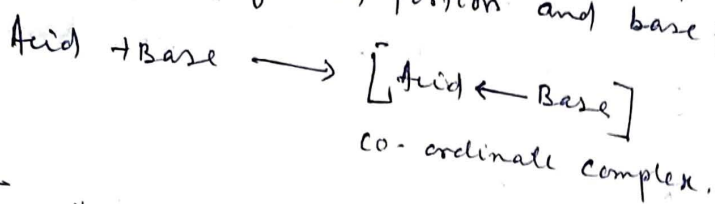 and base
Acid + Base → [Acid ← Base]
co-ordinate complex.